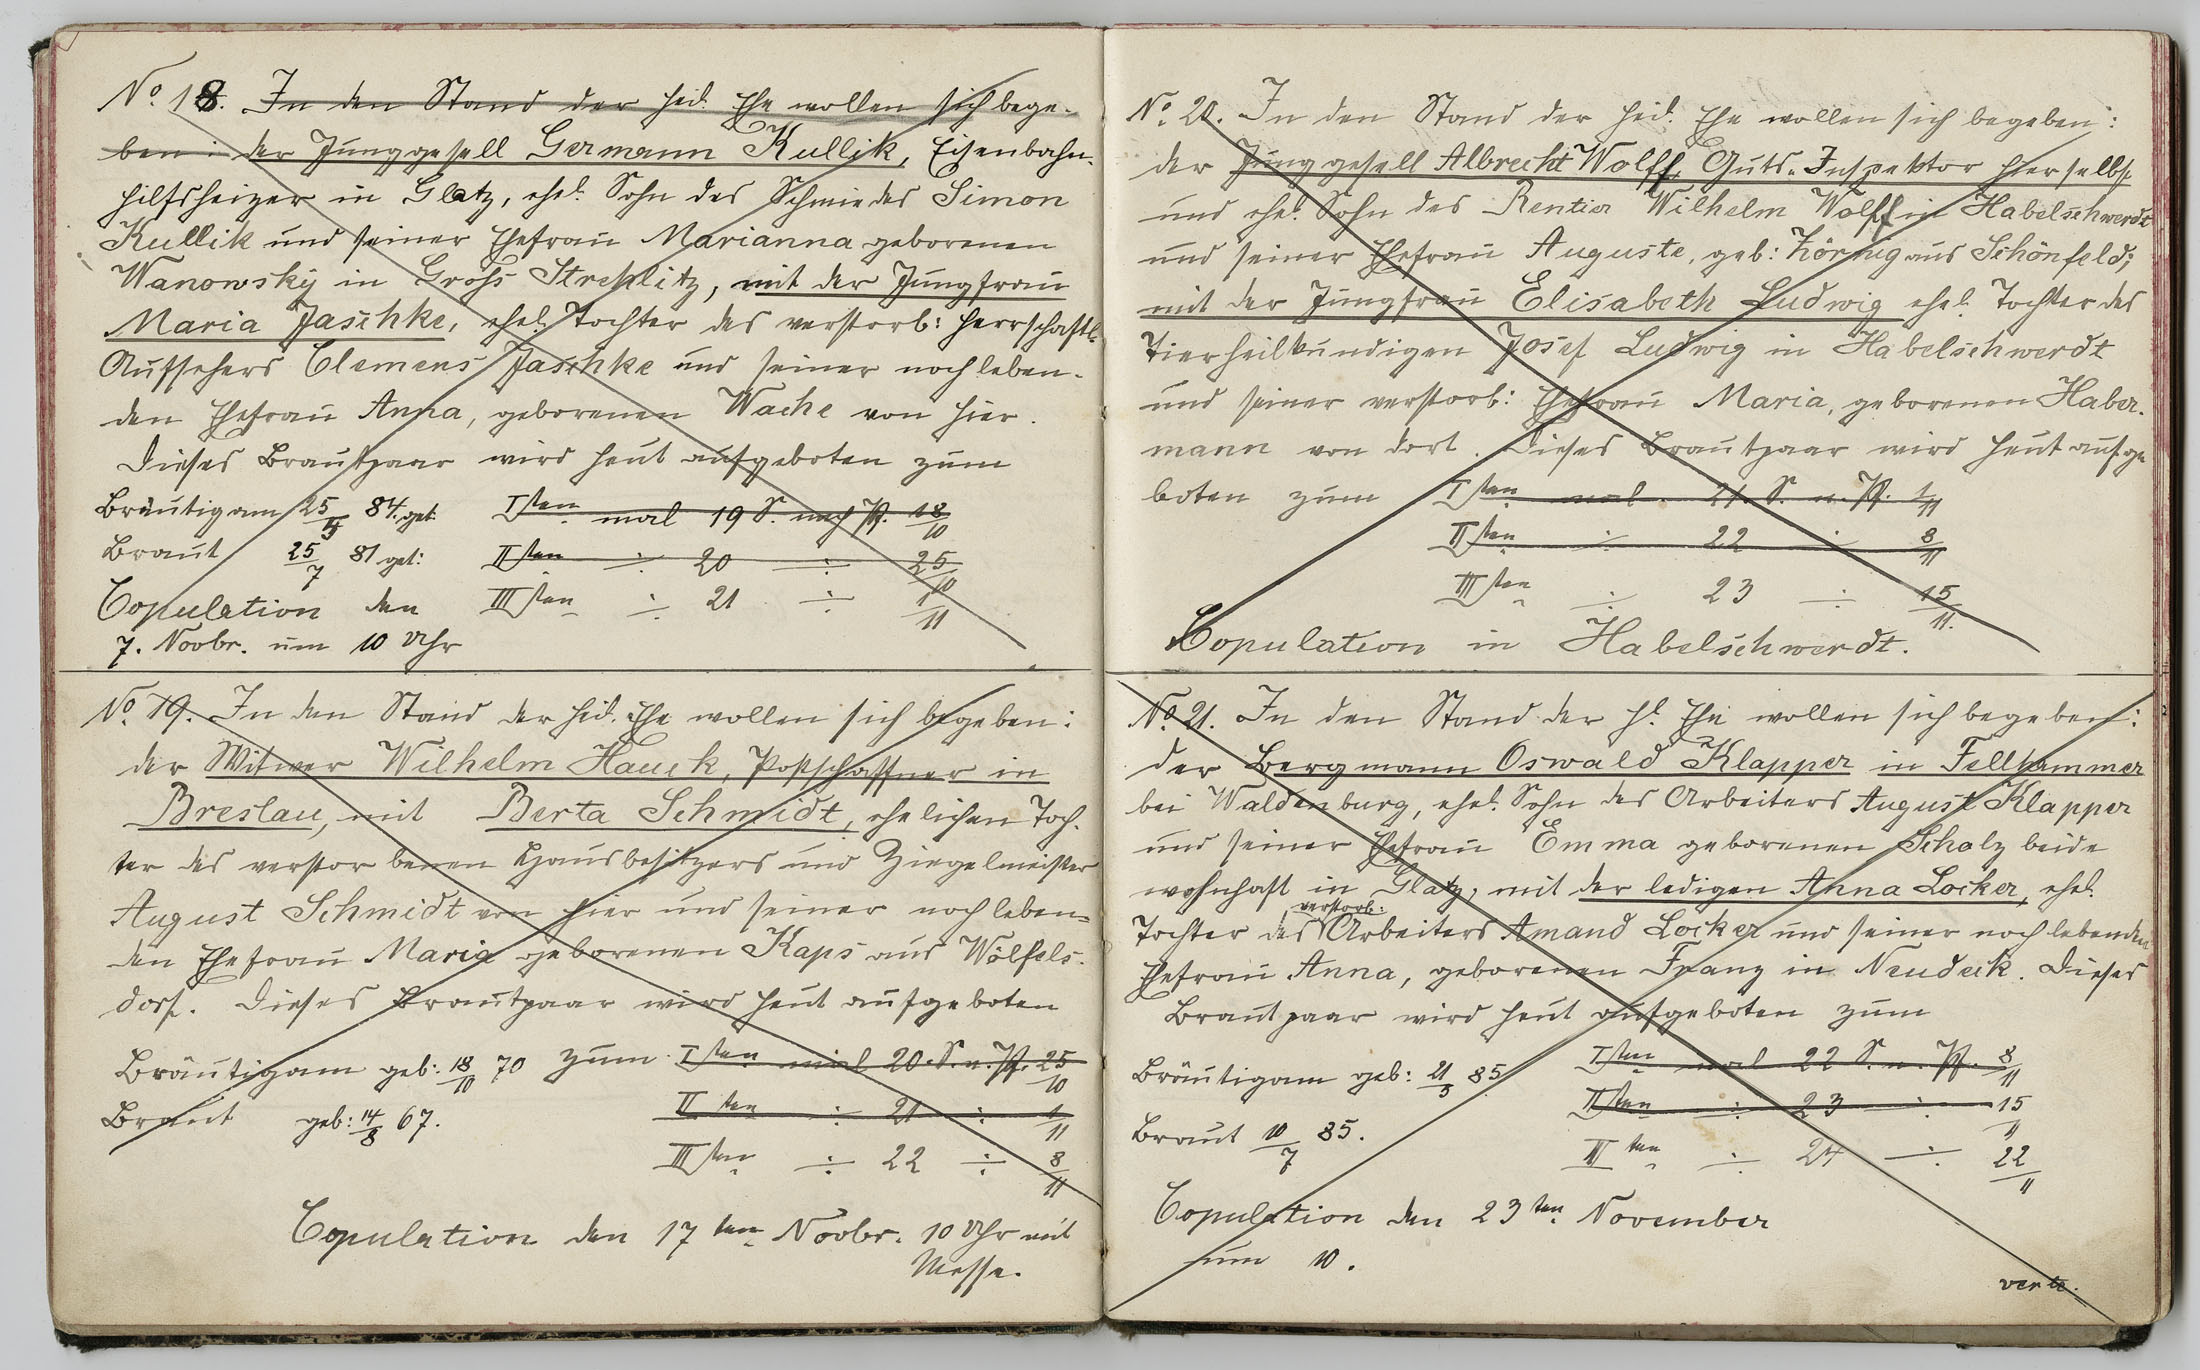 No. 18. In den Stand der heil. Ehe wollen sich bege-
ben: der Junggesell Germann Kullik, Eisenbahn-
hilfsheizer in Glatz, ehel. Sohn des Schmiedes Simon
Kullik und seiner Ehefrau Marianna geborenen
Wanowsky in Gross Strehlitz, mit der Jungfrau
Maria Jaschke, ehel. Tochter des verstorb: herrschaftl.
Aufsehers Clemens Jaschke und seiner noch leben-
den Ehefrau Anna, geborenen Wache von hier.
Dieses Brautpaar wird heut aufgeboten zum
Bräutigam 25/9 84. get. Isten mal 19 S. nach Pf. 18/10
Braut 25/7 81 get: IIten ÷ 20 ÷ 25/10
Copulation den IIIten ÷ 21 ÷ 1/11
7. Novbr. um 10 Uhr
No. 19. In den Stand der heil. Ehe wollen sich begeben:
der Witwer Wilhelm Hauck, Postschaffner in
Breslau, mit Berta Schmidt, ehelichen Toch-
ter des verstorbenen Hausbesitzers und Ziegelmeister
August Schmidt von hier und seiner noch leben-
den Ehefrau Maria geborenen Kaps aus Wölfels-
dorf. Dieses Brautpaar wird heut aufgeboten
Bräutigam geb: 18/10 70 zum Isten mal 20. S. n. Pf. 25/10
Braut geb: 14/8 67. IIten ÷ 21 ÷ 1/11
IIIten ÷ 22 ÷ 8/11
Copulation den 17ten Novbr. 10 Uhr mit
Messe.
No. 20. In den Stand der heil. Ehe wollen sich begeben:
der Junggesell Albrecht Wolff, Guts-Inspektor hierselbst
und ehel. Sohn des Rentier Wilhelm Wolff in Habelschwerdt
und seiner Ehefrau Auguste, geb: Hörnig aus Schönfeld;
mit der Jungfrau Elisabeth Ludwig ehel. Tochter des
Tierheilkundigen Josef Ludwig in Habelschwerdt
und seiner verstorb: Ehefrau Maria, geborenen Haber-
mann von dort. Dieses Brautpaar wird heut aufge
boten zum Isten mal 21. S. n. Pf. 1/11
IIten ÷ 22 ÷ 8/11
IIIten ÷ 23 ÷ 15/11.
Copulation in Habelschwerdt.
No. 21. In den Stand der hl. Ehe wollen sich begeben:
der Bergmann Oswald Klapper in Fellhammer
bei Waldenburg, ehel. Sohn des Arbeiters August Klapper
und seiner Ehefrau Emma geborenen Scholz beide
wohnhaft in Glatz, mit der ledigen Anna Locker, ehel.
verstorb:
Tochter des Arbeiters Amand Locker und seiner noch lebenden
Ehefrau Anna, geborenen Franz in Neudeck. Dieses
Brautpaar wird heut aufgeboten zum
Bräutigam geb: 21/5 85 Isten mal 22 S. n. Pf. 8/11
Braut 10/7 85. IIten ÷ 23 ÷ 15/11
IIIten ÷ 24 ÷ 22/11
Copulation den 23ten November
um 10.
verte.